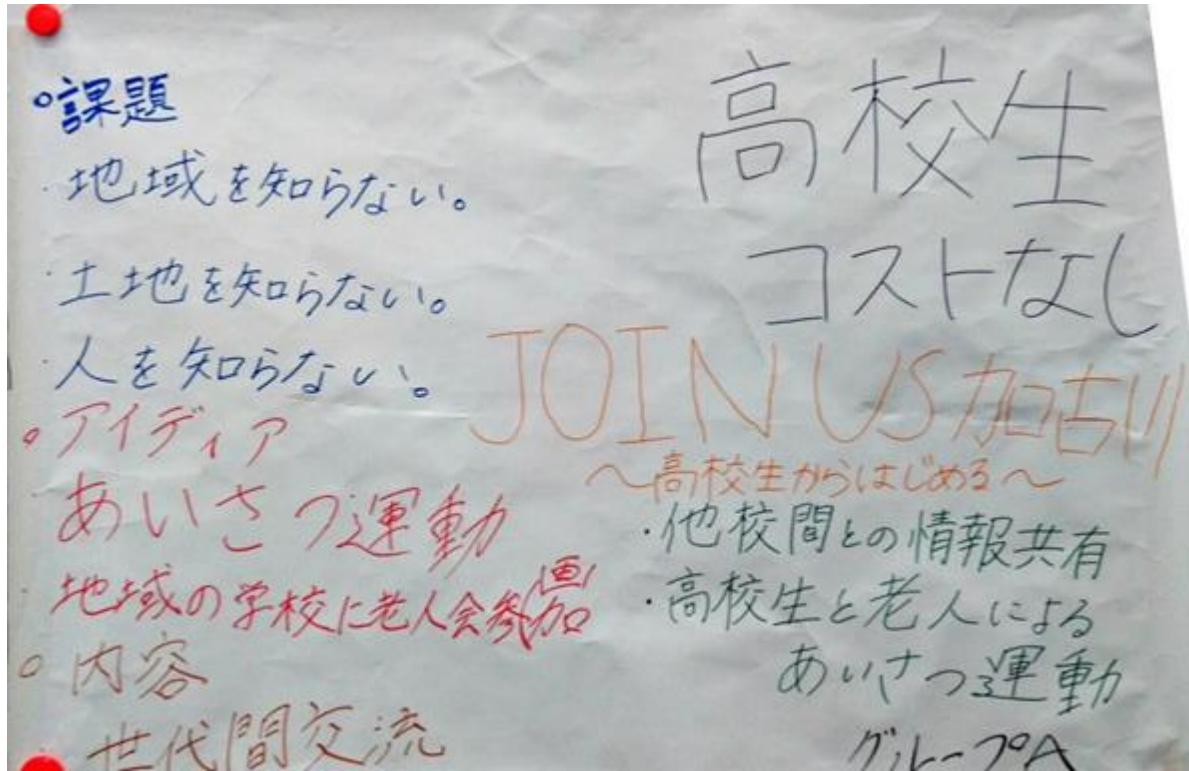 ○課題
・地域を知らない。
・土地を知らない。
・人を知らない。
○アイディア
あいさつ運動
地域の学校に老人会参加
画
○内容
世代間交流
高校生
コストなし
JOIN US 加古川
～高校生からはじめる～
・他校間との情報共有
・高校生と老人による
あいさつ運動
グループA